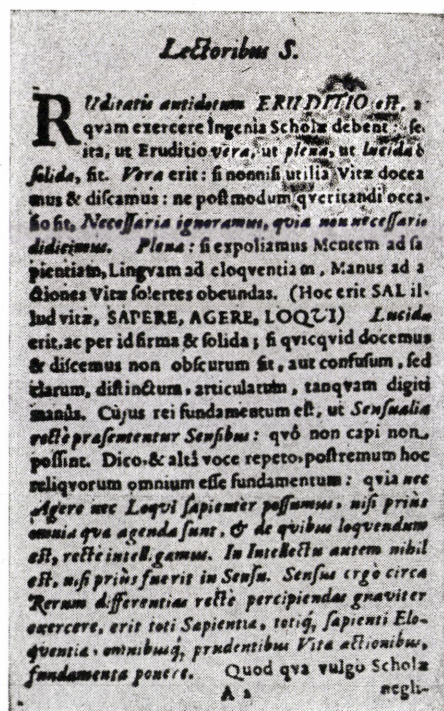 Lectoribus S.
RUditatis antidotum ERUDITIO est, a
qvam exercere Ingenia Scholæ debent: se
ita, ut Eruditio vera, ut plena, ut lucida &
solida, sit. Vera erit: si nonnisi utilia Vitæ docea
mus & discamus: ne postmodum qveritandi occa-
sio sit, Necessaria ignoramus, quia non necessario
didicimus. Plena: si expoliamus Mentem ad sa
pientiam, Lingvam ad eloqventiam, Manus ad a
ctiones Vitæ solertes obeundas. (Hoc erit SAL il-
lud vitæ, SAPERE, AGERE, LOQUI) Lucida
erit, ac per id firma & solida; si qvicqvid docemus
& discemus non obscurum sit, aut confusum, sed
clarum, distinctum, articulatum, tanqvam digiti
manûs. Cujus rei fundamentum est, ut Sensualia
rectè præsententur Sensibus: qvô non capi non
possint. Dico, & altâ voce repeto, postremum hoc
reliqvorum omnium esse fundamentum: qvia nec
Agere nec Loqvi sapienter possumus, nisi priùs
omnia qva agenda sunt, & de qvibus loqvendum
est, rectè intelligamus. In Intellectu autem nihil
est, nisi priùs fuerit in Sensu. Sensus ergò circa
Rerum differentias rectè percipiendas gnaviter
exercere, erit toti Sapientiæ, totiq́, sapienti Elo-
qventiæ, omnibusq́, prudentibus Vitæ actionibus,
fundamenta ponere. Quod qva vulgo Scholæ
A 2 negli-